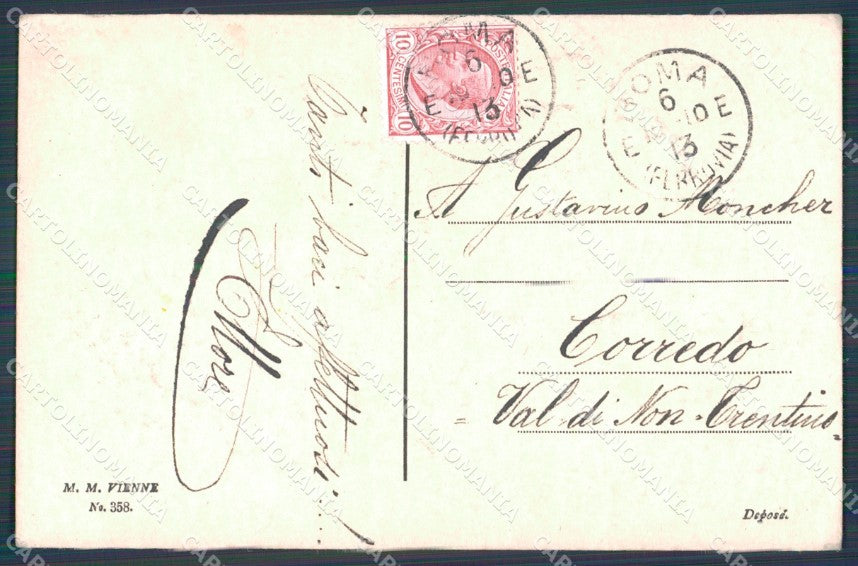 Tanti baci affettuosi...!
Ettore
M. M. VIENNE
No. 358.
10 CENTESIMI 10
ROMA
6
E 10 E
13
(FERROVIA)
ROMA
6
E 10 E
13
(FERROVIA)
A Gustavino Moncher
Corredo
= Val di Non-Trentino =
Deposé.
CARTOLINOMANIA